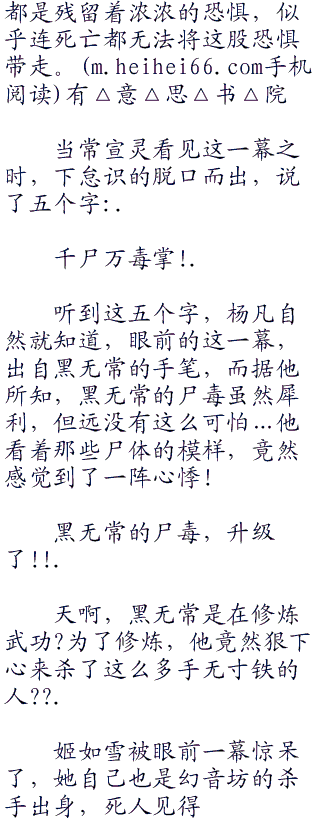 都是残留着浓浓的恐惧，似
乎连死亡都无法将这股恐惧
带走。(m.heihei66.com手机
阅读)有△意△思△书△院
当常宣灵看见这一幕之
时，下怠识的脱口而出，说
了五个字:.
千尸万毒掌!.
听到这五个字，杨凡自
然就知道，眼前的这一幕，
出自黑无常的手笔，而据他
所知，黑无常的尸毒虽然犀
利，但远没有这么可怕…他
看着那些尸体的模样，竟然
感觉到了一阵心悸!
黑无常的尸毒，升级
了!!.
天啊，黑无常是在修炼
武功?为了修炼，他竟然狠下
心来杀了这么多手无寸铁的
人??.
姬如雪被眼前一幕惊呆
了，她自己也是幻音坊的杀
手出身，死人见得